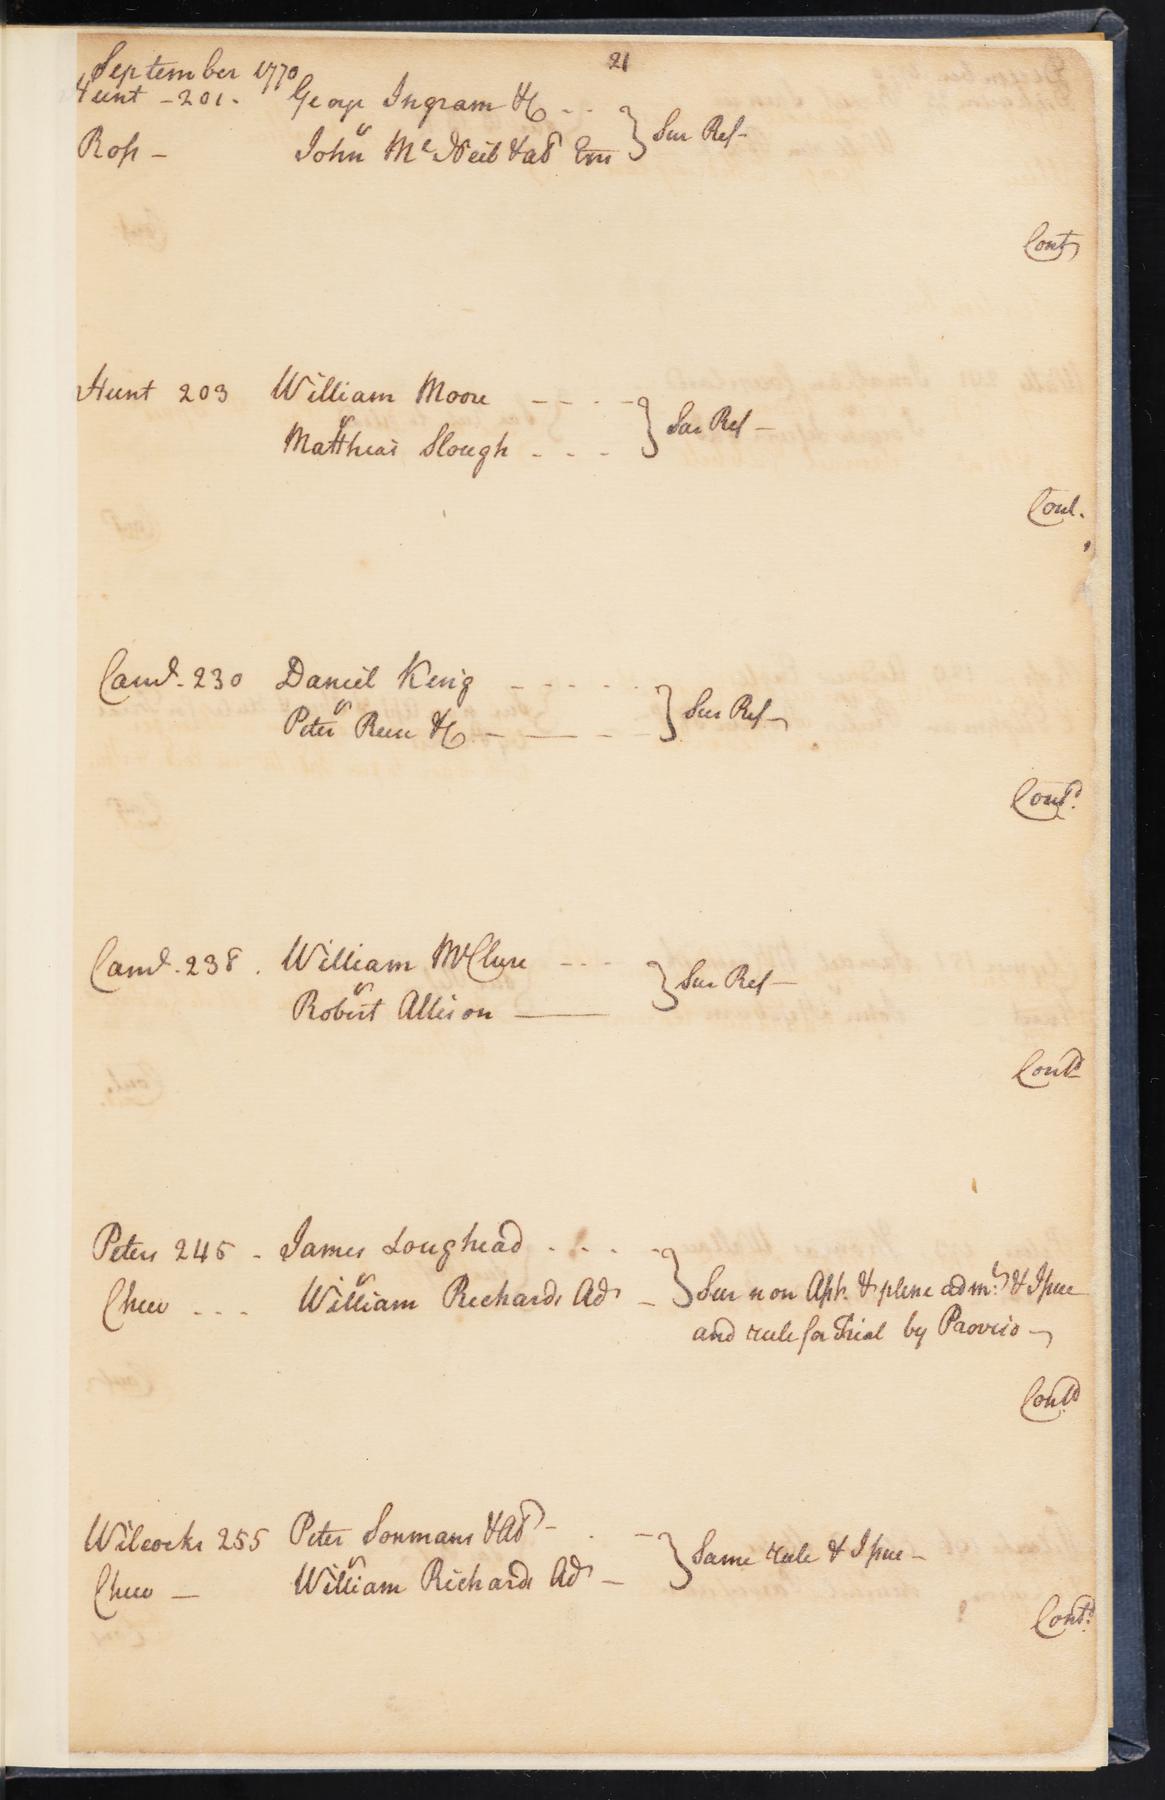 21
September 1770
Hunt - 201 - George Ingram &C - -
v
Ross - John McNeil & al Exrs } Sur Ref -
Cont
Hunt 203 William Moore - - - -
v
Matthias Slough - - - } Sur Ref -
Cont.
Camd. 230 Daniel King - - - - -
v
Peter Reese &C - - - - } Sur Ref -
Contd.
Camd. 238. William McClure - - -
v
Robert Allison - } Sur Ref -
Contd
Peters 245 - James Loughead - - - -
v
Chew - - - William Richards Adr - } Sur non Asst. & plene admt. & Issue
and rule for Trial by Proviso -
Contd
Wilcocks 255 Peter Sonmans & al - - -
v
Chew - William Richards Adr - } Same rule & Issue -
Contd.